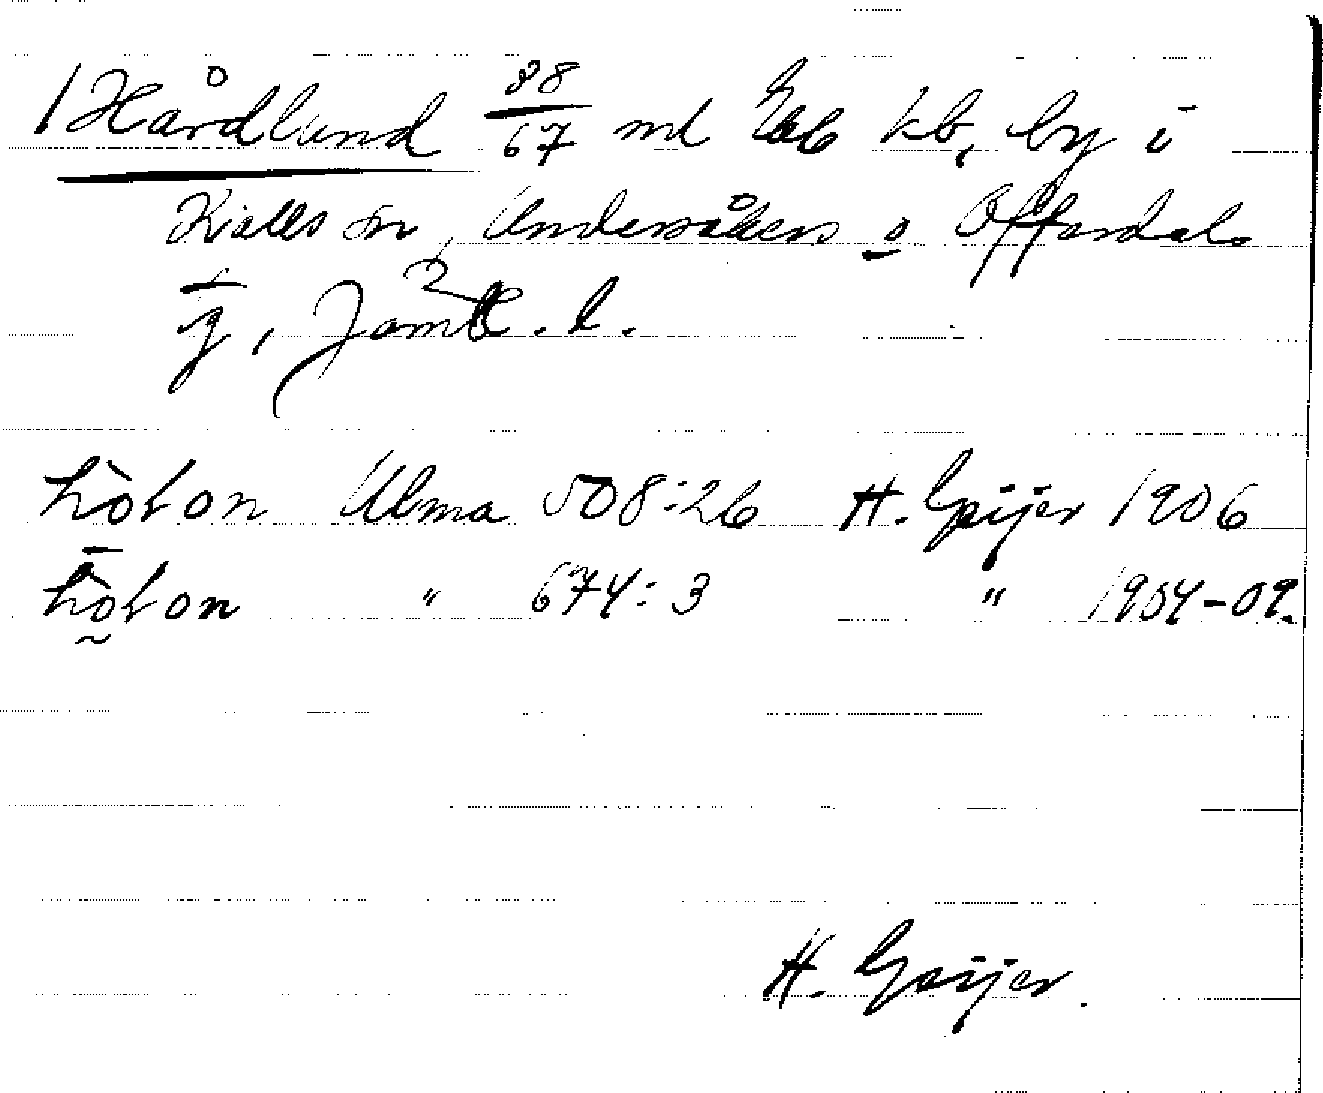 Hårdlund 88/67 ml Eab kb, by i
Kialls sn, Undersåkers o Offerdals
tg, Jämtl. l.
hòlon Ulma 508:26 H. Geijer 1906
hòlon " 674:3 " 1904-09.
H. Geijer.